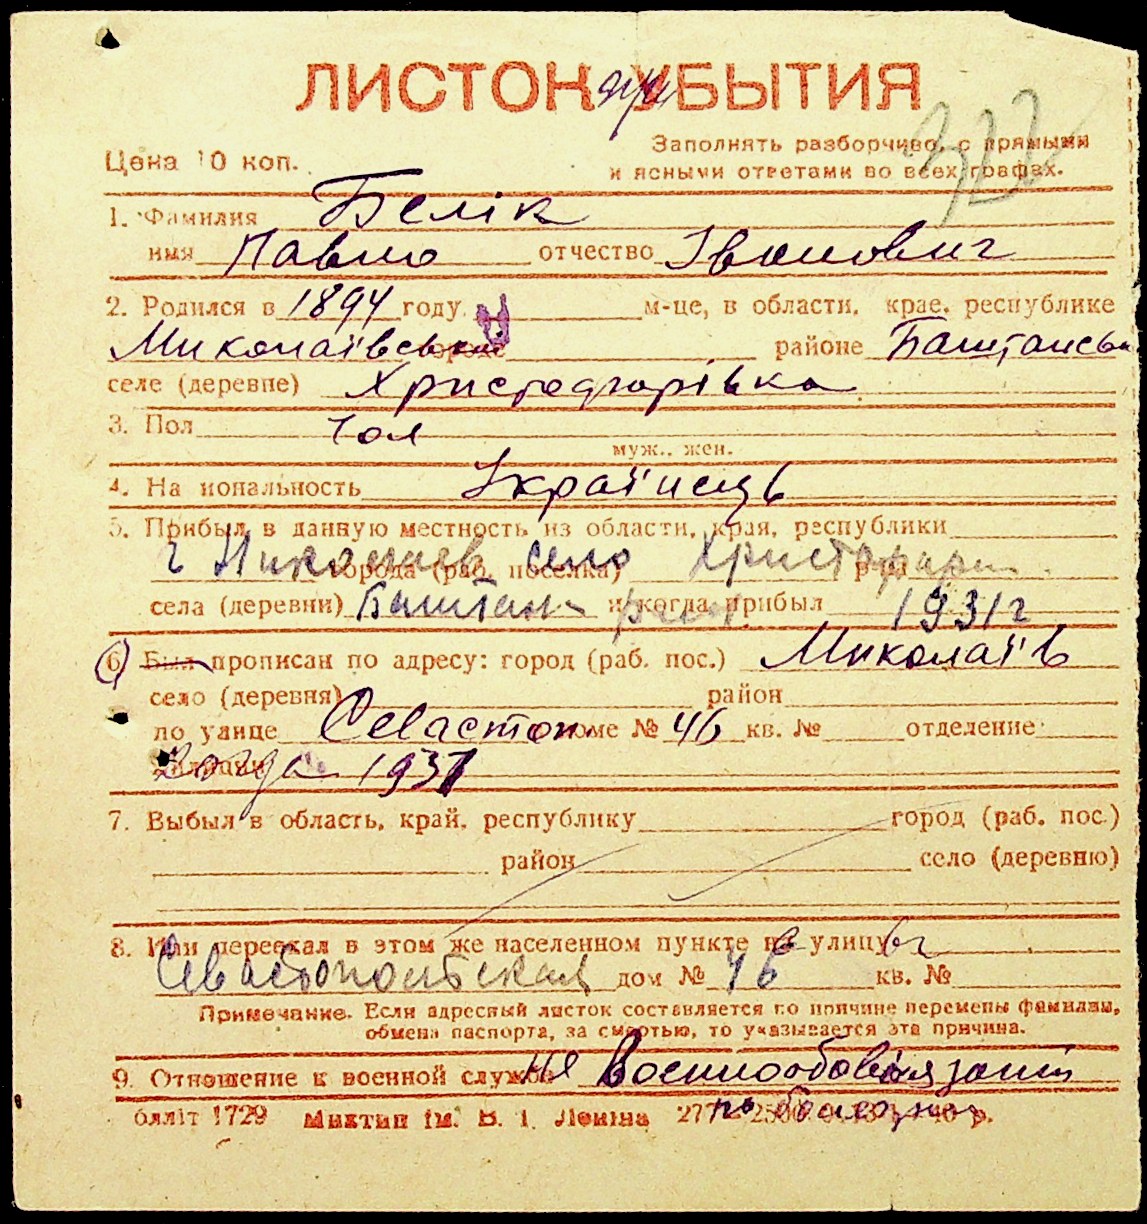 ЛИСТОК УБЫТИЯ
Цена 10 коп.
Заполнять разборчиво, с прямыми
и ясными ответами во всех графах.
1. Фамилия Белік
имя Павло отчество Іванович
2. Родился в 1894 году м-це, в области, крае, республике
Миколаївськ городе районе Баштанськ
селе (деревне) Христофорівка
3. Пол Чол
муж., жен.
4. На иональность Українець
5. Прибыл в данную местность из области, края, республики
г Николаев село Христофор
города (раб. поселка) р-на
села (деревни) Баштан район и когда прибыл 1931 г
6. Был прописан по адресу: город (раб. пос.) Миколаїв
село (деревня) район
по улице Севастоп доме № 46 кв. № отделение
милиции 1937
7. Выбыл в область, край, республику город (раб. пос.)
район село (деревню)
8. Или переехал в этом же населенном пункте на улицу
Севастопольская дом № 46 кв. №
Примечание. Если адресный листок составляется по причине перемены фамилии,
обмена паспорта, за смертью, то указывается эта причина.
9. Отношение к военной службе не Военнообовязаний
облліт 1729 Миктип ім. В. І. Леніна